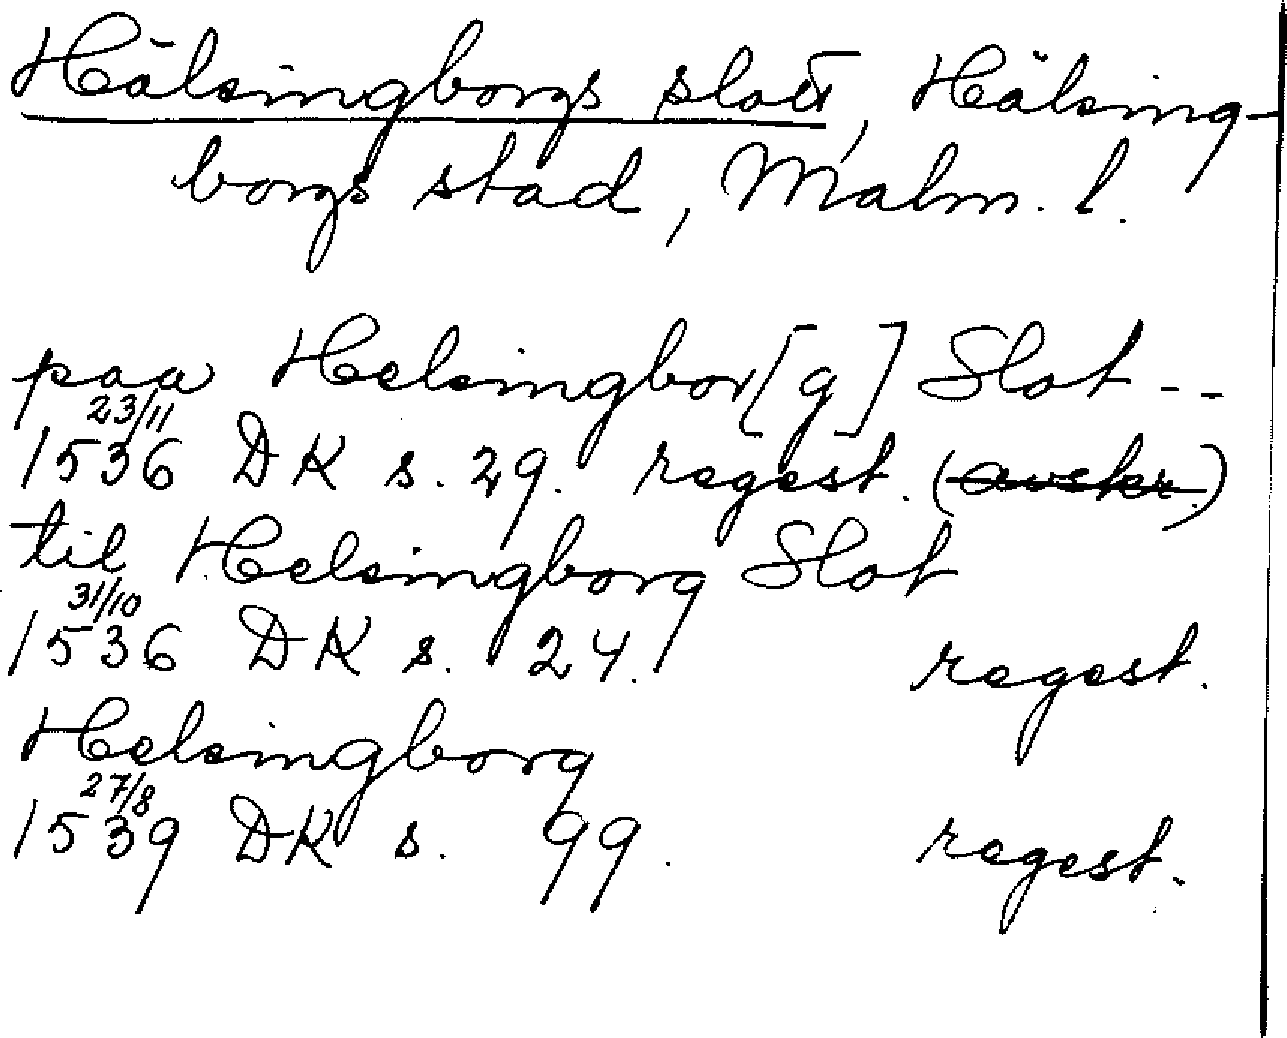 Hälsingborgs slott, Hälsing-
borgs stad, Malm. l.
paa Helsingbor[g] Slot - -
23/11
1536 DK s. 29. regest. (avskr.)
til Helsingborg Slot
31/10
1536 DK s. 24. regest.
Helsingborg
27/8
1539 DK s. 99. regest.